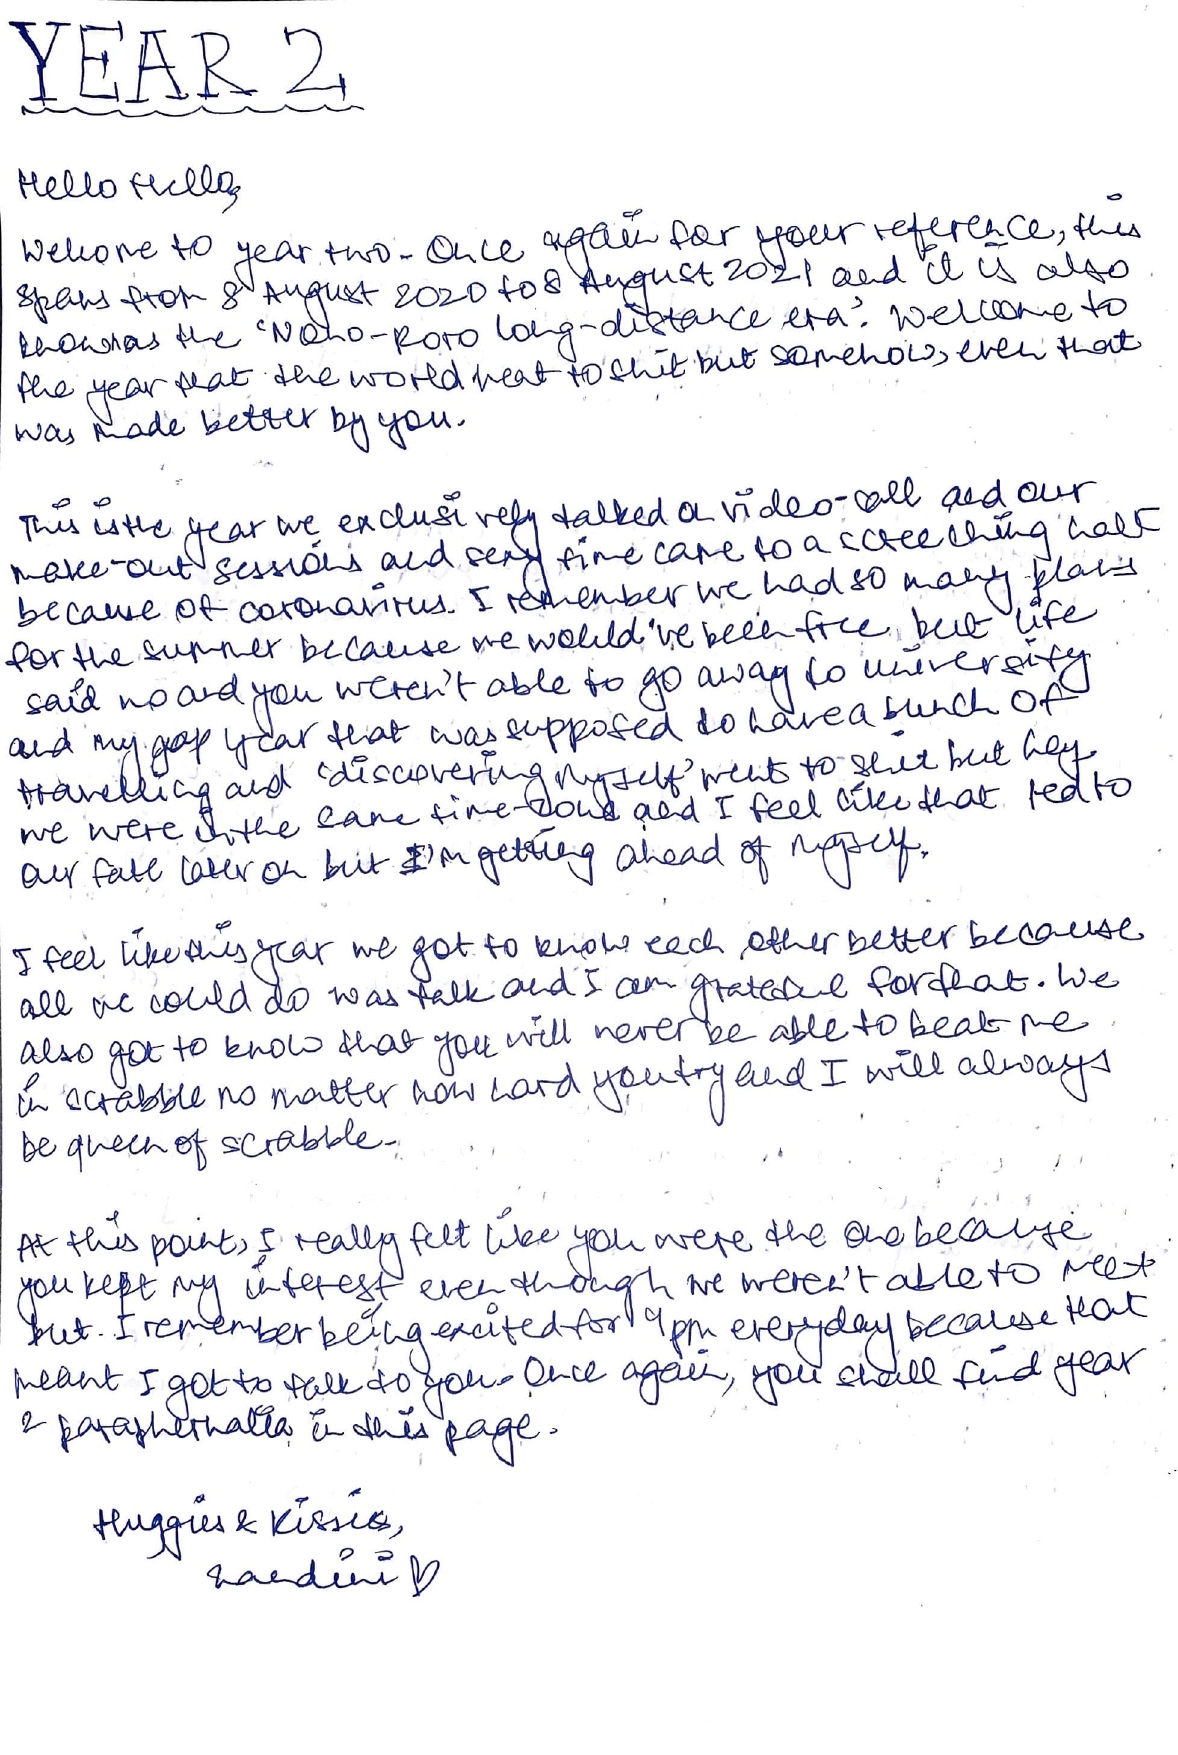 YEAR 2
Hello Hello,
Welcome to year two. Once again for your reference, this
spans from 8 August 2020 to 8 August 2021 and it is also
known as the 'Nono-Roro long-distance era'. Welcome to
the year that the world went to shit but somehow, even that
was made better by you.
This is the year we exclusively talked on video-call and our
make-out sessions and sexy time came to a screeching halt
because of coronavirus. I remember we had so many plans
for the summer because we would've been free, but life
said no and you weren't able to go away to university
and my gap year that was supposed to have a bunch of
travelling and 'discovering myself' went to shit but hey,
we were in the same time-zone and I feel like that led to
our fate later on but I'm getting ahead of myself.
I feel like this year we got to know each other better because
all we could do was talk and I am grateful for that. We
also got to know that you will never be able to beat me
in scrabble no matter how hard you try and I will always
be queen of scrabble.
At this point, I really felt like you were the one because
you kept my interest even though we weren't able to meet
but. I remember being excited for 9 pm everyday because that
meant I got to talk to you. Once again, you shall find year
2 paraphernalia in this page.
Huggies & Kissies,
Nandini ♡